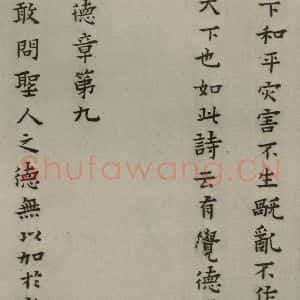 下和平灾害不生旤亂不作
天下也如此詩云有覺德
德章第九
敢問聖人之德無以加於
Shufawang.CN